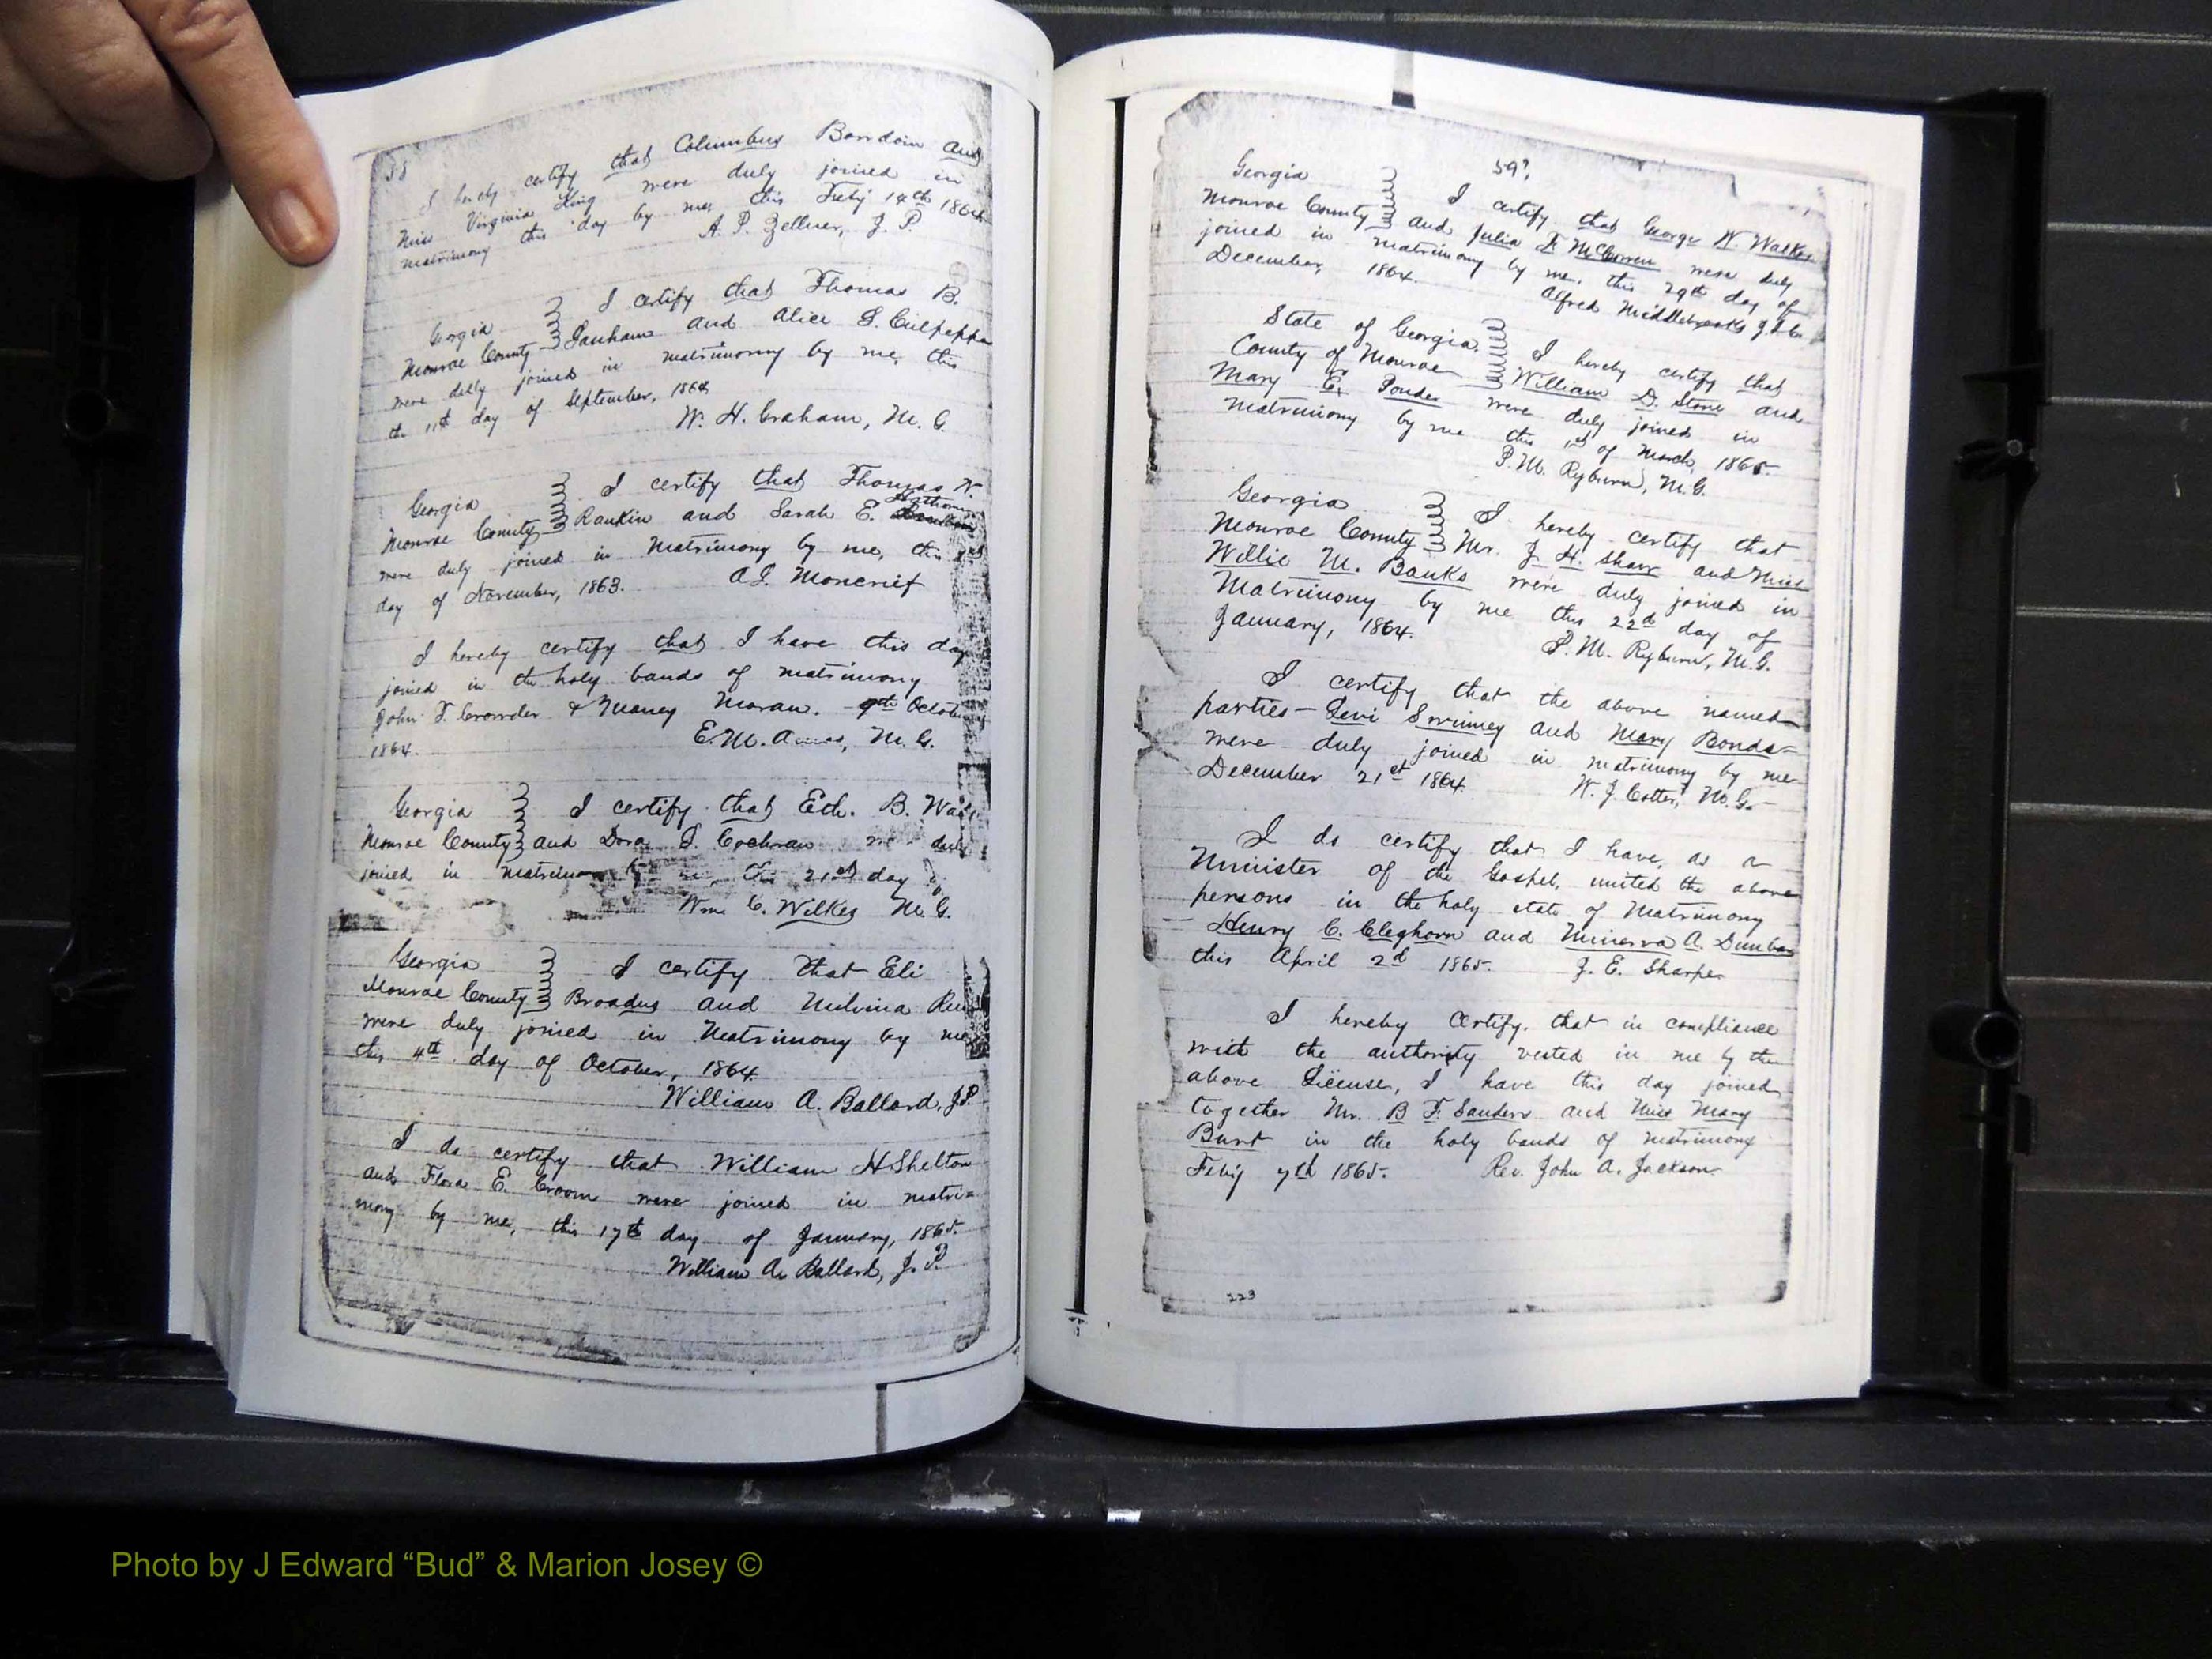 58
I hereby certify that Columbus Bowdoin and
Miss Virginia King were duly joined in
matrimony this day by me, this Feby 14th 1864
A. P. Zellner, J. P.
Georgia
Monroe County
I certify that Thomas B.
Ganham and Alice S. Culpepper
were dully joined in matrimony by me, this
the 11th day of September, 1864
W. H. Graham, M. G.
Georgia
Monroe County
I certify that Thomas N.
Rankin and Sarah E.
were duly joined in Matrimony by me, this
day of November, 1863.
A. S. Moncrief
I hereby certify that I have this day
joined in the holy bands of matrimony
John F. Crowder & Nancy Moran. 9th Octob
1864.
E. M. Amos, M. G.
Georgia
Monroe County
I certify that Eth. B.
and Dora S. Cochran duly
joined in 21st day
Wm. C. Wilkes M. G.
Georgia
Monroe County
I certify that Eli
Broadus and Milvina
were duly joined in Matrimony by me
this 4th day of October, 1864
William A. Ballard, J.P.
I do certify that William H Shelton
and Flora E. Croom were joined in matri=
mony by me, this 17th day of January, 1865.
William A. Ballard, J. P.
59?
Georgia
Monroe County
I certify that George W. Walker
and Julia F. McCowen were duly
joined in matrimony by me, this 29th day of
December, 1864.
Alfred Middlebrooks J.I.C.
State of Georgia
County of Monroe
I hereby certify that
William D. Stone and
Mary E. Ponder were duly joined in
matrimony by me this 1st of March, 1865.
P. M. Ryburn, M.G.
Georgia
Monroe County
I hereby certify that
Mr. J. H. Shaw and Miss
Willie M. Banks were duly joined in
Matrimony by me this 22d day of
January, 1864.
P. M. Ryburn, M.G.
I certify that the above named
parties — Levi Swinney and Mary Bonds=
were duly joined in matrimony by me
December 21st 1864.
W. J. Cotter, M. G.
I do certify that I have, as a
Minister of the Gospel, united the above
persons in the holy state of Matrimony
— Henry C. Cleghorn and Minerva A. Dunbar
this April 2d 1865.
J. E. Sharpe
I hereby certify that in compliance
with the authority vested in me by the
above License, I have this day joined
together Mr. B F. Sanders and Miss Mary
Burt in the holy bands of matrimony
Feby 7th 1865.
Rev. John A. Jackson
223
Photo by J Edward “Bud” & Marion Josey ©